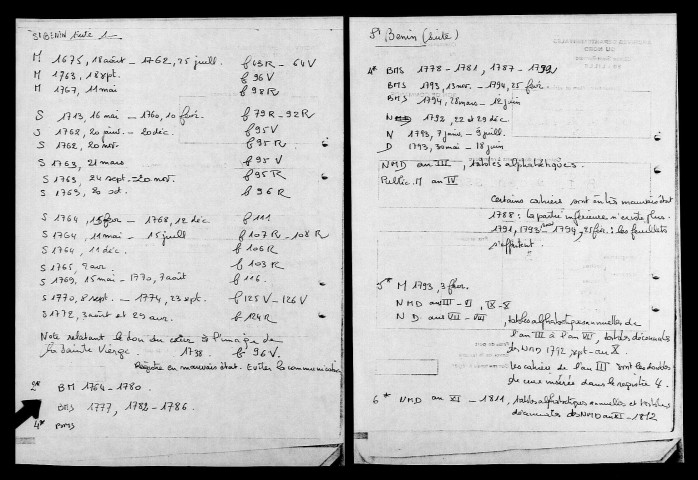 St BENIN suite 1
M 1675, 18 août - 1762, 25 juill. f 43R - 64V
M 1763, 18 spt. f 96 V
M 1767, 11 mai f 98R
S 1713, 16 mai - 1760, 10 févr. f 79R - 92R
S 1762, 20 janv. - 20 déc. f 95V
S 1762, 20 nov. f 95R
S 1763, 21 mars f 95 V
S 1763, 24 sept. - 20 nov. f 95R
S 1763, 20 oct. f 96R
S 1764, 15 févr - 1768, 12 déc f 111
S 1764, 11 mai - 15 juill f 107R - 108R
S 1764, 11 déc. f 106R
S 1765, 9 avr. f 103R
S 1769, 15 mai - 1770, 7 août f 116.
S 1770, 8 sept. - 1774, 23 spt. f 125V - 126V
S 1772, 3 août et 23 f 124R
Note relatant le don du cœur à l'image de
la Sainte Vierge. 1738. f 96V.
Registre en mauvais état. Eviter la communication
2* BM 1764 - 1780.
BMS 1777, 1782 - 1786.
4* BMS
St Benin (suite)
4* BMS 1778 - 1781, 1787 - 1792
BMS 1793, 13 nov. - 1794, 25 févr.
BMS 1794, 28 mars - 12 juin
N 1792, 22 et 29 déc.
N 1793, 7 janv - 9 juill.
D 1793, 30 mai - 18 juin
NMD an III, tables alphabétiques.
Public. M an IV
Certains cahiers sont en très mauvais état
1788: La partie inférieure n'existe plus.
1791, 1793 1794, 25 févr.: les feuillets
s'effritent.
5* M 1793, 3 févr.
NMD an III - VI, IX - X
ND an VII - VIII, tables alphabétiques annuelles de
l'an III à l'an VI, tables décennales
des NMD 1792 sept - an X.
Les cahiers de l'an III sont les doubles
de ceux insérés dans le registre 4.
6* NMD an XI - 1811, tables alphabétiques annuelles et tables
décennales des NMD an XI - 1812